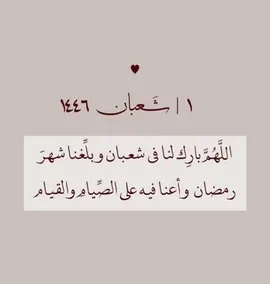 ١ | شَعبان ١٤٤٦
اللَّهُمَّ بارِك لنا فى شعبان وبلِّغنا شهرَ
رمضان وأعنا فيه على الصِّيامِ والقيام